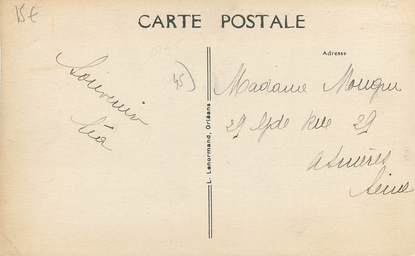 15€
CARTE POSTALE
Adresse
Souvenir
Léa
45)
L. Lenormand, Orléans
Madame
29 Gde Rue 29
Asnières
Seine